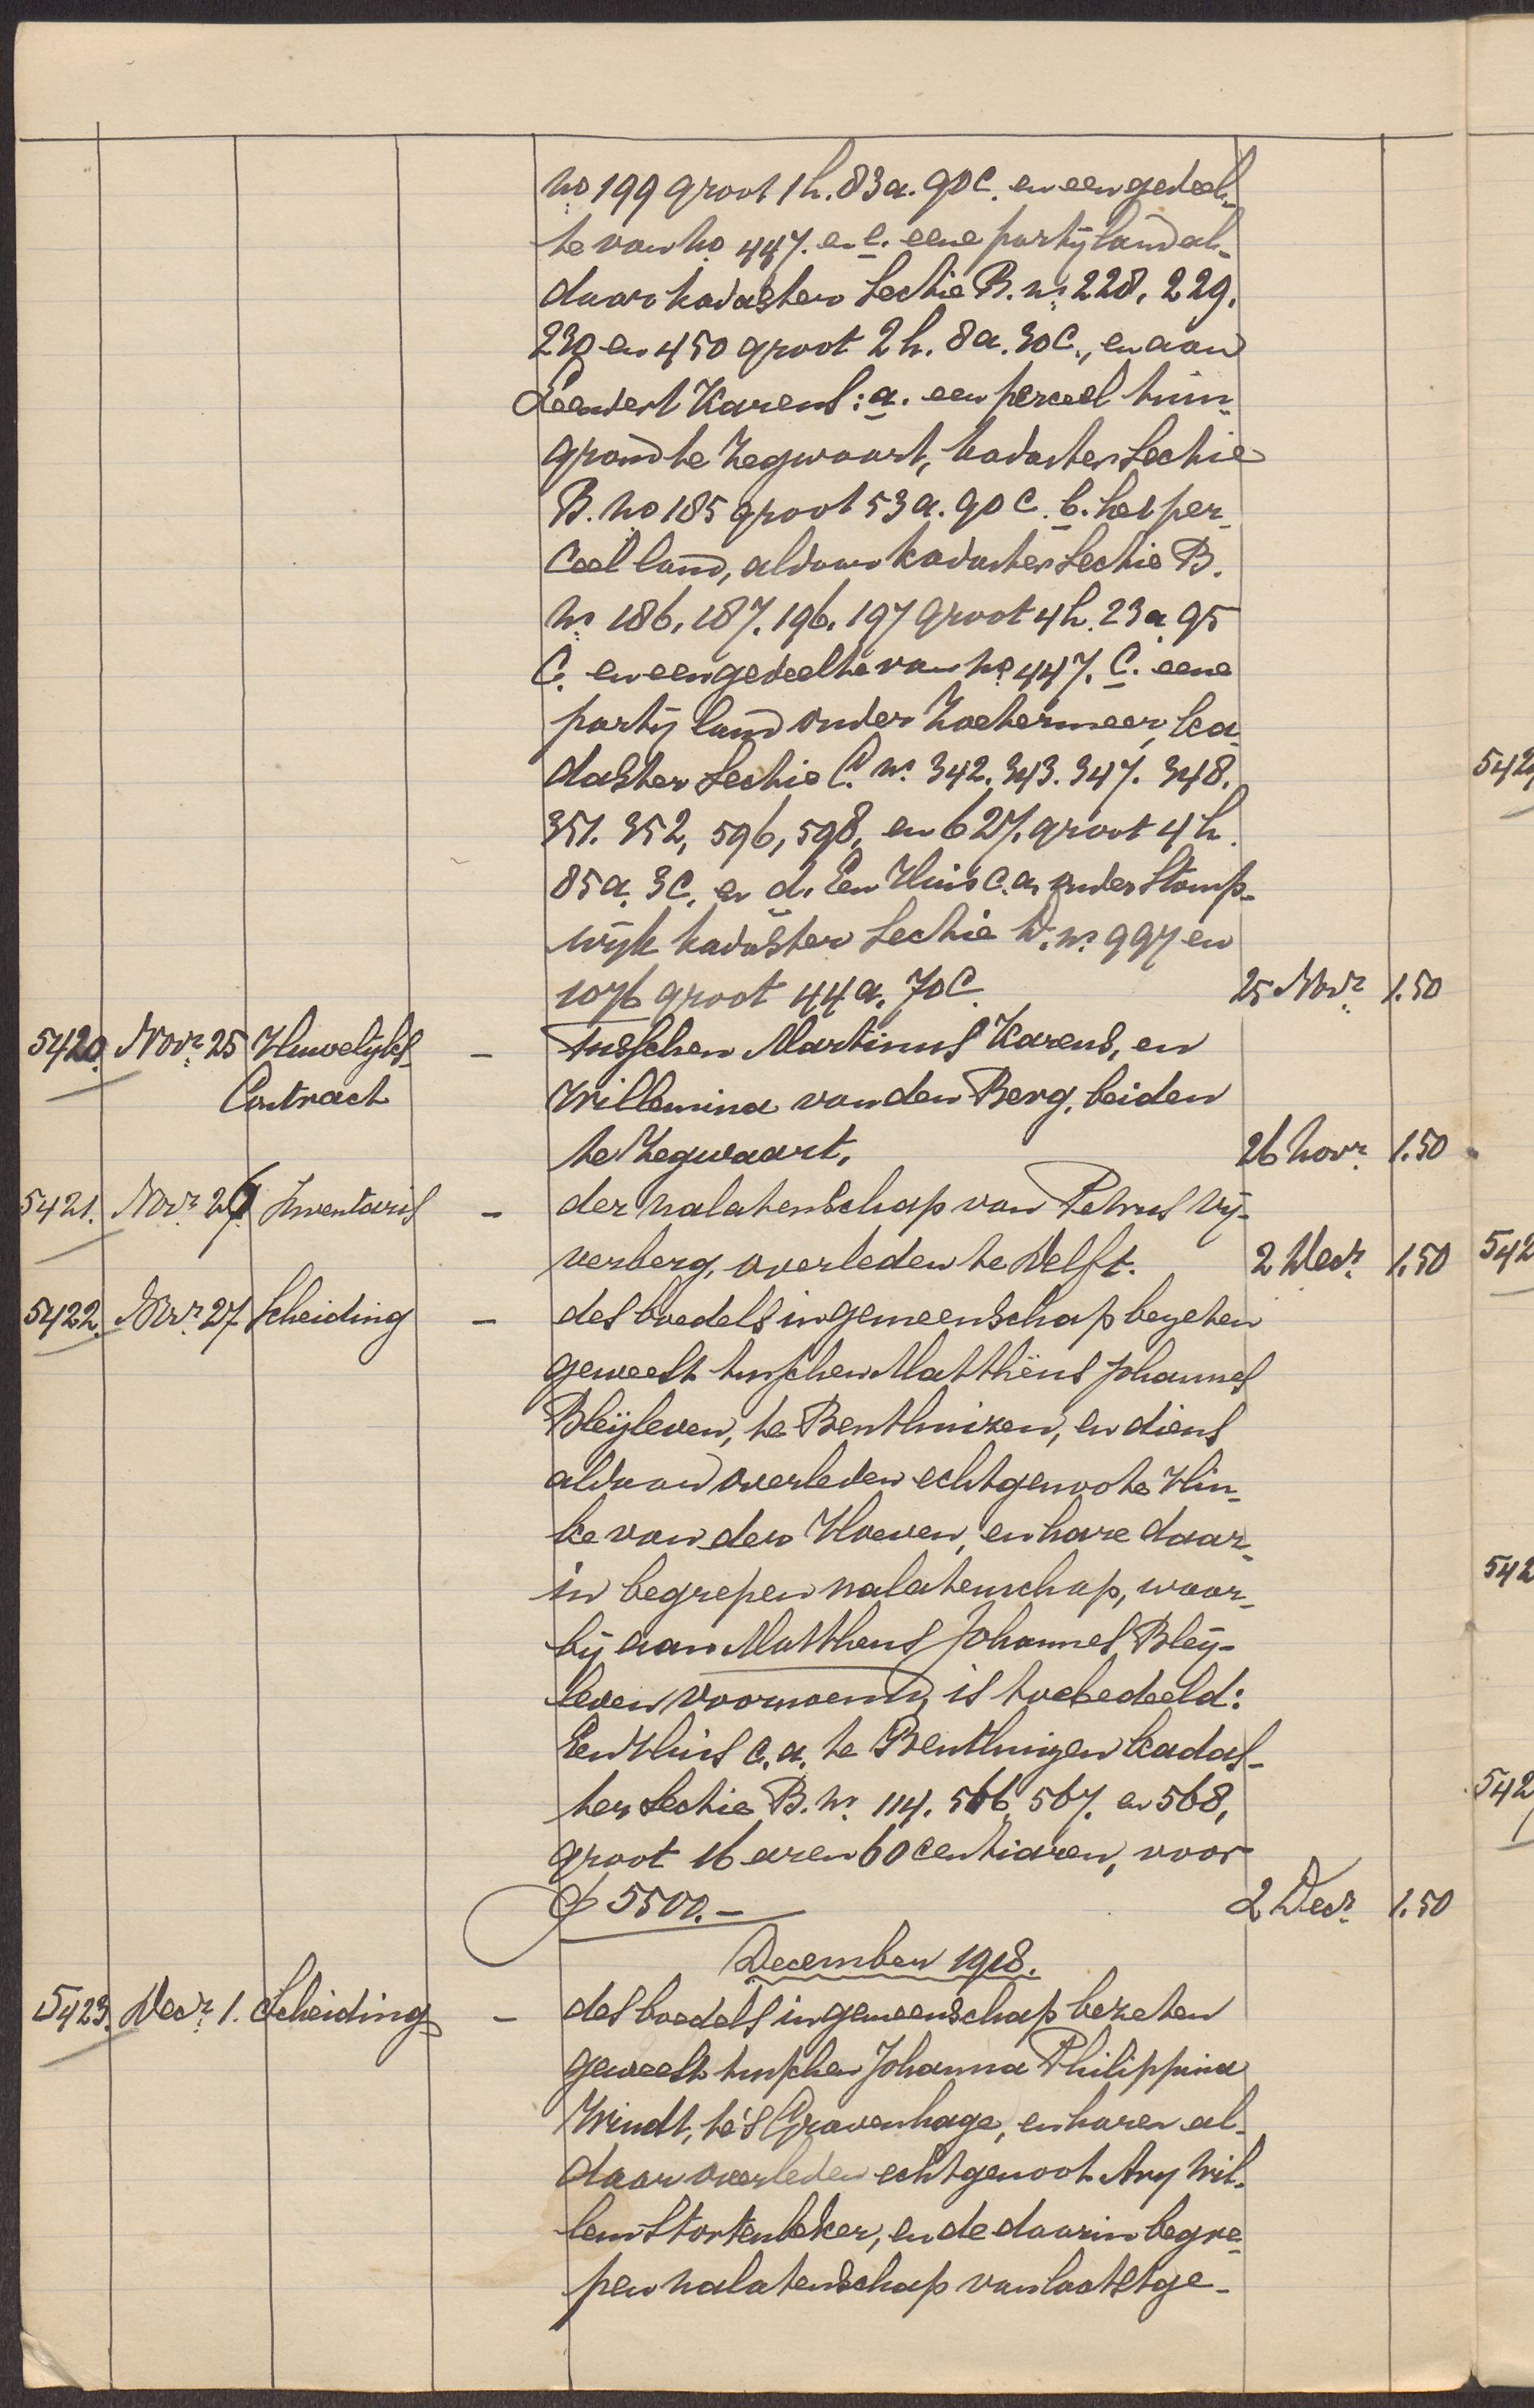 no 199 groot 1 h. 83 a. 90 C. en een gedeel-
te van no 447. en e. eene partij land al-
daar kadaster Sectie B. ns 228, 229,
230 en 450 groot 2 h. 8 a. 30 C., en aan
Leendert Karens: a. een perceel tuin-
grond te Zegwaart, kadaster Sectie
B. no 185 groot 53 a. 90 C. b. het per-
ceel land, aldaar kadaster Sectie B.
ns 186, 187, 196, 197 groot 4 h. 23 a. 95
C. en een gedeelte van no 447. C. eene
partij land onder Zoetermeer, ka-
daster Sectie C. ns 342. 343. 347. 348.
351. 352, 596, 598, en 627. groot 4 h.
85 a. 3 C. en d. Een Huis c.a. onder Stomp-
wijk kadaster Sectie D. ns 997 en
1076 groot 44 a. 70 C. 25 Novr 1.50
5420. Novr 25 Huwelijks- - tusschen Martinus Karens, en
Contract Willemina van den Berg, beiden
te Zegwaart. 26 Novr 1.50
5421. Novr 26 Inventaris - der nalatenschap van Petrus Vij-
verberg, overleden te Delft. 2 Decr 1.50
5422. Novr 27 Scheiding - des boedels in gemeenschap bezeten
geweest tusschen Matthëus Johannes
Bleijleven, te Benthuizen, en diens
aldaar overleden echtgenoote Hin-
ke van der Hoeven, en hare daar-
in begrepen nalatenschap, waar-
bij aan Mattheus Johannes Bleij-
leven voornoemd, is toebedeeld:
Een Huis c.a. te Benthuizen kadas-
ter Sectie B. ns 114. 566, 567. en 568,
groot 16 aren 60 centiaren, voor
ƒ 5500.- 2 Decr 1.50
December 1918.
5423. Decr 1. Scheiding - des boedels in gemeenschap bezeten
geweest tusschen Johanna Philippina
Windt, te 's Gravenhage, en haren al-
daar overleden echtgenoot Ary Wil-
lem Stortenbeker, en de daarin begre-
pen nalatenschap van laatstge-
542
542
542
542